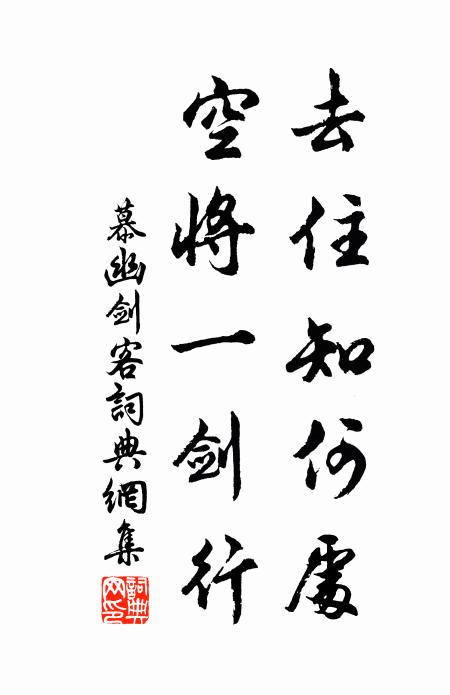 去住知何處
空將一劍行
慕幽劍客詞典網集
詞典網印